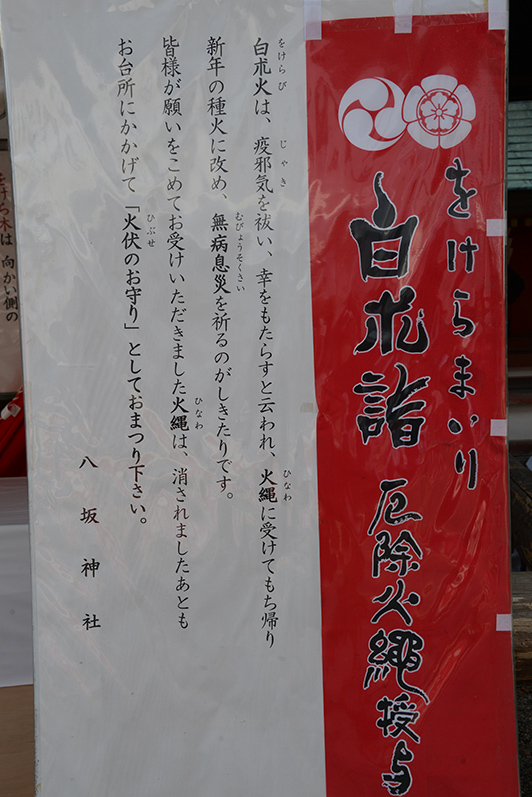 をけらまいり
白朮詣 厄除火縄授与
をけらび じゃき
白朮火は、疫邪気を祓い、幸をもたらすと云われ、火縄に受けてもち帰り
ひなわ
新年の種火に改め、無病息災を祈るのがしきたりです。
むびょうそくさい
皆様が願いをこめてお受けいただきました火縄は、消されましたあとも
ひなわ
お台所にかかげて「火伏のお守り」としておまつり下さい。
ひぶせ
八坂神社
をけら木は 向かい側の